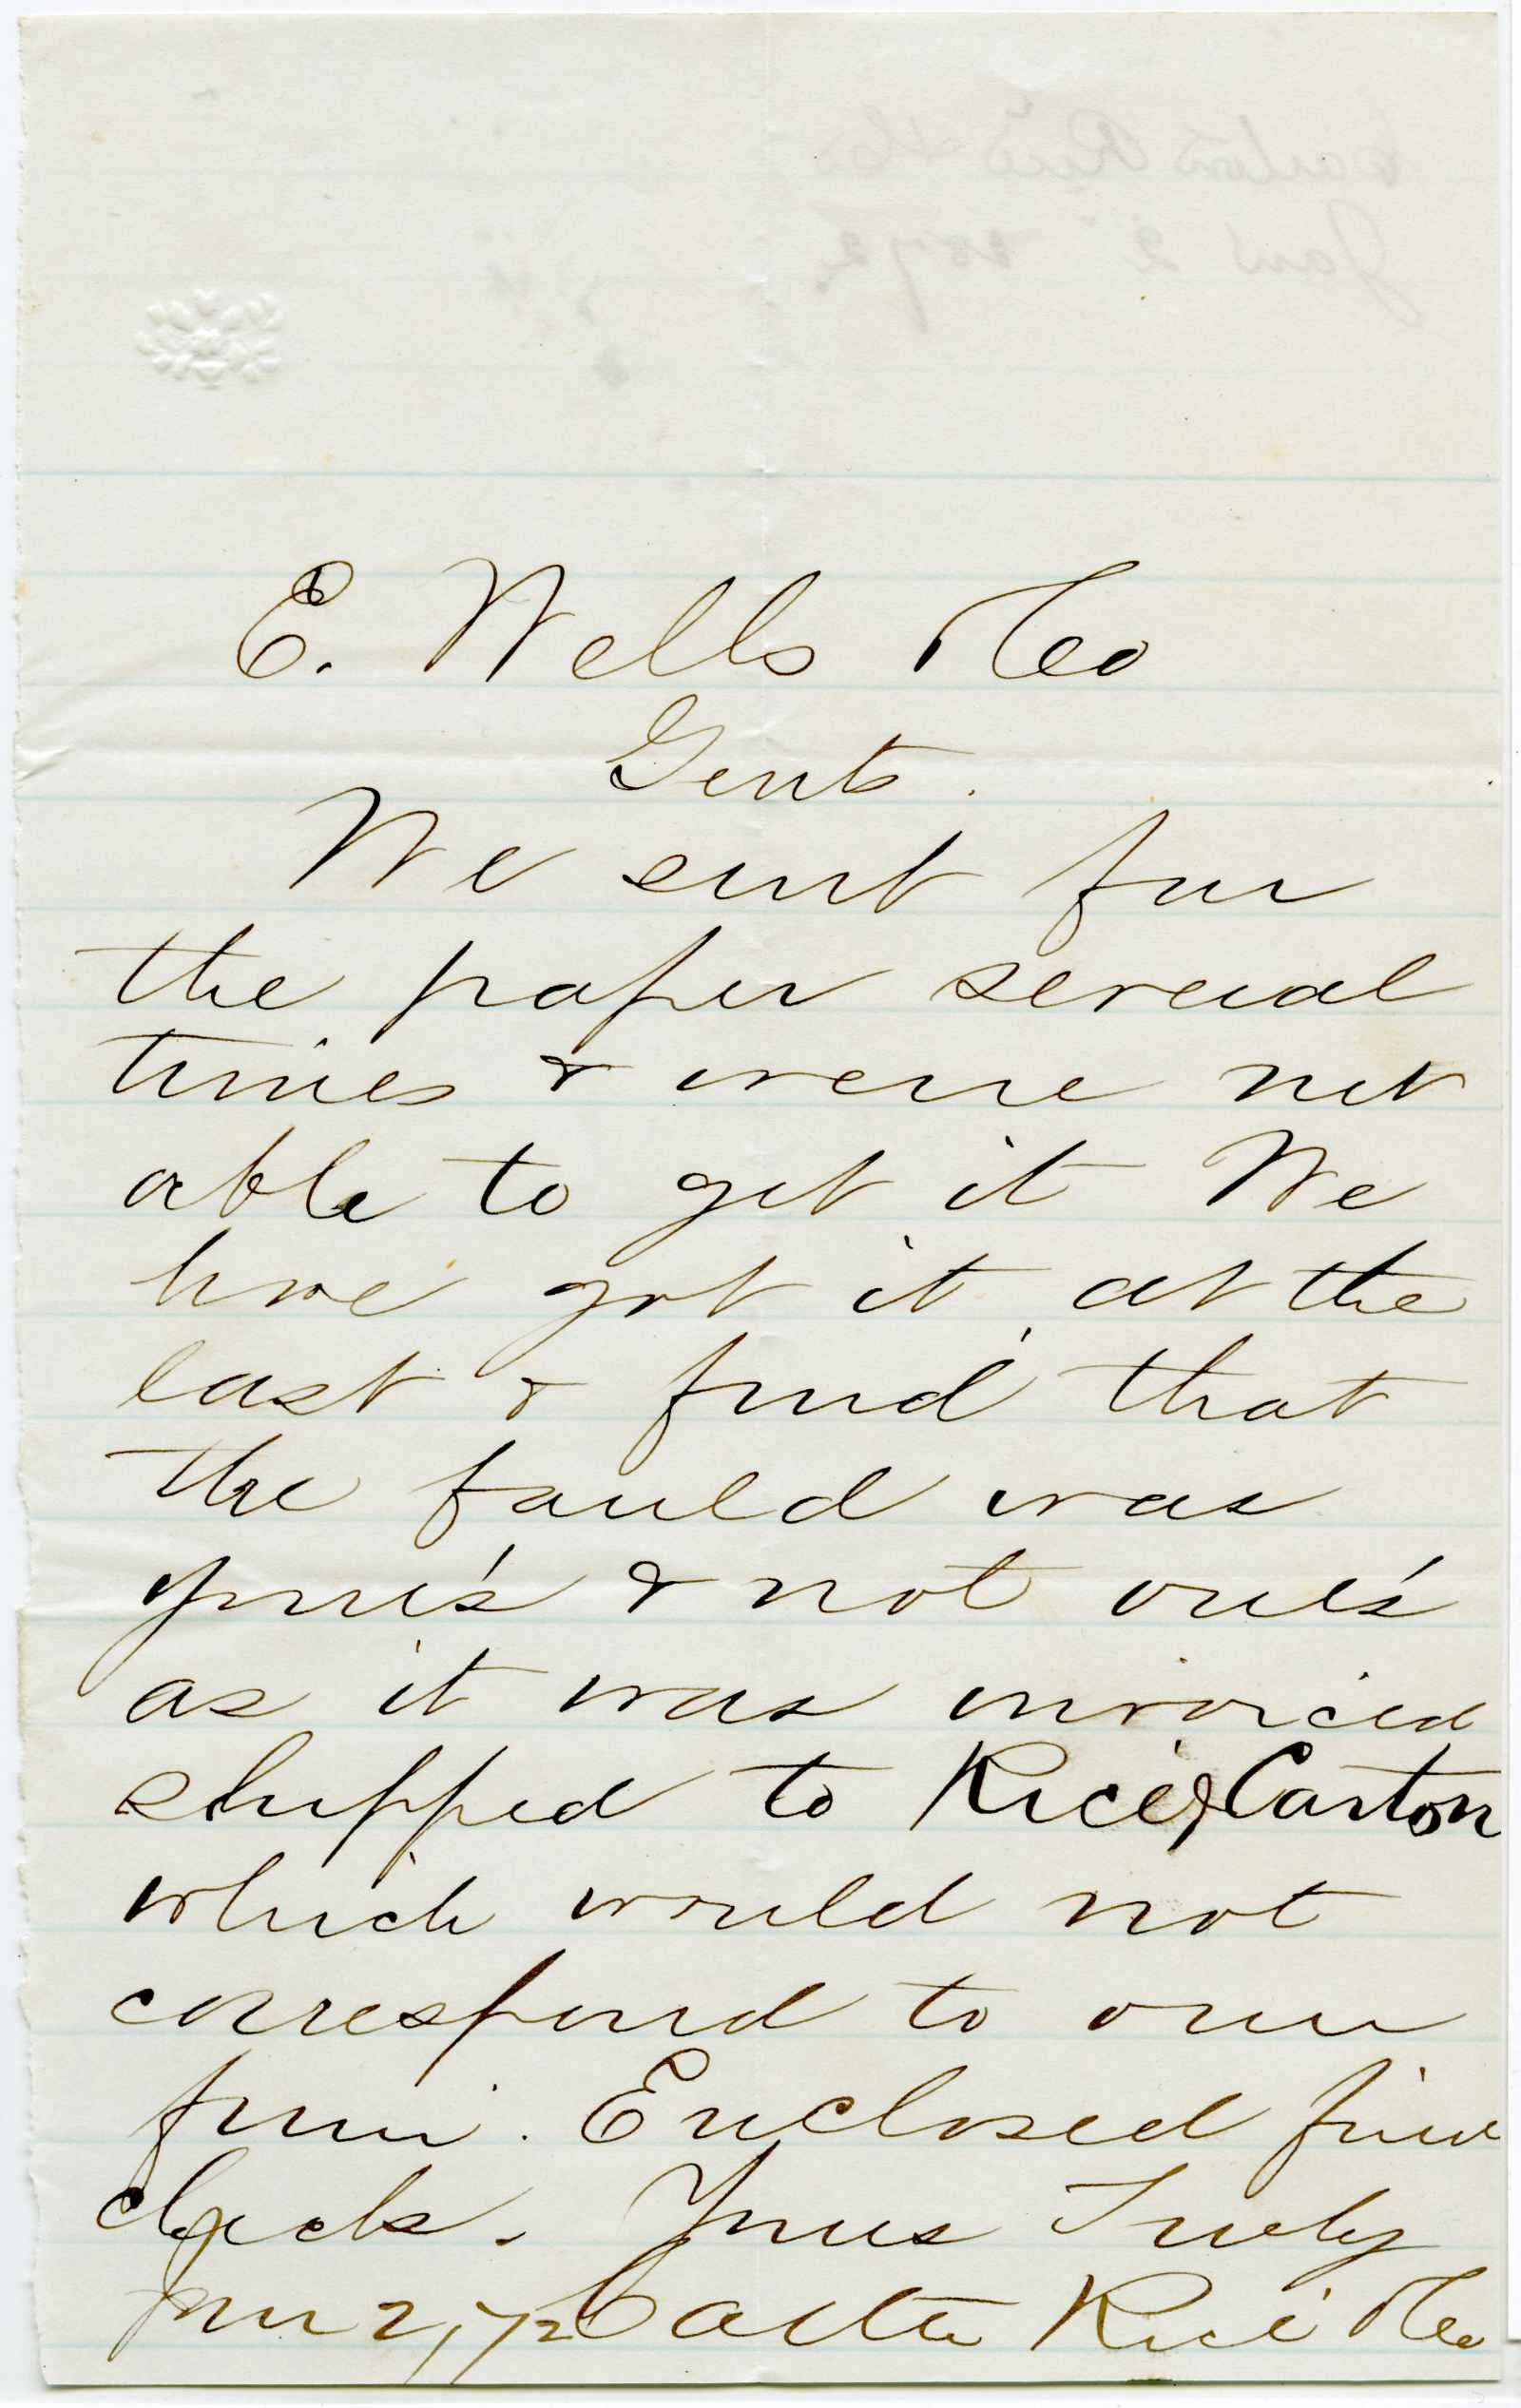 E. Wells & Co
Gents.
We sent for
the paper several
times & were not
able to get it We
have got it at the
last & find that
the fauld was
your's & not our's
as it was invoiced
shipped to Rice & Carton
which would not
correspond to our
firm. Enclosed find
check. Yours Truly
Jan 2, 72 Carter Rice & Co